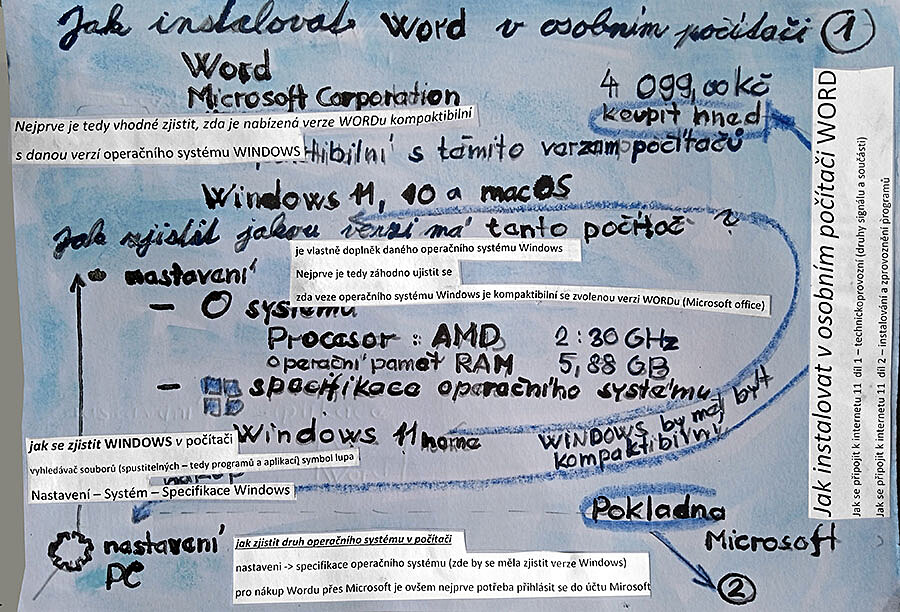 Jak instalovat Word v osobním počítači 1
Word
Microsoft Corporation
4 099,00 kč
koupit hned
Nejprve je tedy vhodné zjistit, zda je nabízená verze WORDu kompaktibilní
s danou verzí operačního systému WINDOWS
s těmito verzam počítačů
Windows 11, 10 a macOS
Jak zjistit jakou verzi má tanto počítač ?
je vlastně doplněk daného operačního systému Windows
Nejprve je tedy záhodno ujistit se
zda veze operačního systému Windows je kompaktibilní se zvolenou verzí WORDu (Microsoft office)
nastavení
– O systému
Procasor : AMD 2:30 GHz
operační pamět RAM 5,88 GB
– specifikace operačního systému
Windows 11 home
WINDOWS by měl být
kompaktibilní
jak se zjistit WINDOWS v počítači
vyhledávač souborů (spustitelných – tedy programů a aplikací) symbol lupa
Nastavení – Systém – Specifikace Windows
Pokladna
Microsoft
2
nastavení
PC
jak zjistit druh operačního systému v počítači
nastaveni -> specifikace operačního systému (zde by se měla zjistit verze Windows)
pro nákup Wordu přes Microsoft je ovšem nejprve potřeba přihlásit se do účtu Mirosoft
Jak instalovat v osobním počítači WORD
Jak se připojit k internetu 11 díl 1 – technickoprovozní (druhy signálu a součástí)
Jak se připojit k internetu 11 díl 2 – instalování a zprovoznění programů